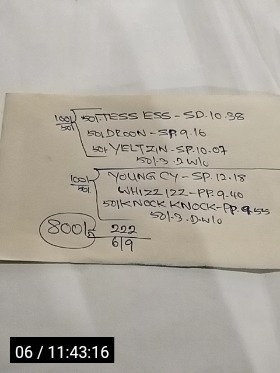 100/50/ 50/-TESS ESS-SD.10.38
50/DROON-SP.9.16
50/-YELTZIN-SP.10.07
50/-3.D.W/O
100/50/ YOUNG CY-SP.12.18
WHIZZ IZZ-PP.9.40
50/KNOCK KNOCK-PP.9.55
50/-3.D.W/O
800/- 222
6/9
06 / 11:43:16